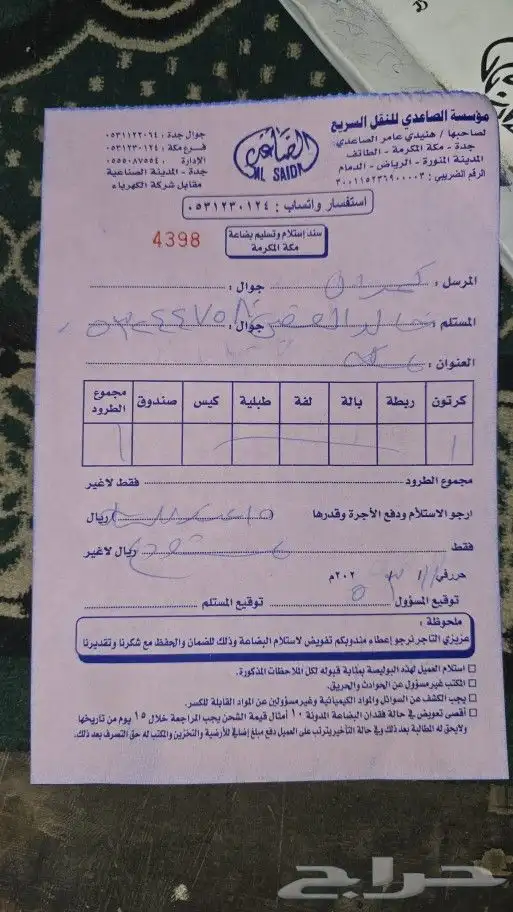 مؤسسة الصاعدي للنقل السريع
لصاحبها / هنيدي عامر الصاعدي
جدة - مكة المكرمة - الطائف
المدينة المنورة - الرياض - الدمام
الرقم الضريبي : ٣٠٠١١٥٢٣٦٩٠٠٠٠٣
الصاعدي
AL SAIDI
جوال جدة : ٠٥٣١١٢٢٠٦٤
فرع مكة : ٠٥٣١٢٣٠١٢٤
الإدارة : ٠٥٥٥٠٨٧٥٥٤
جدة - المدينة الصناعية
مقابل شركة الكهرباء
استفسار واتساب : ٠٥٣١٢٣٠١٢٤
سند إستلام وتسليم بضاعة
مكة المكرمة
4398
المرسل : جوال :
المستلم : خالد جوال :
العنوان : مكه
كرتون ربطة بالة لفة طبلية كيس صندوق مجموع الطرود
١ ١
مجموع الطرود فقط لاغير
ارجو الاستلام ودفع الأجرة وقدرها ( ) ريال
فقط ريال لاغير
حرر في / / ٢٠٢ م
توقيع المسؤول توقيع المستلم
ملحوظة :
عزيزي التاجر نرجو إعطاء مندوبكم تفويض لاستلام البضاعة وذلك للضمان والحفظ مع شكرنا وتقديرنا
استلام العميل لهذه البوليصة بمثابة قبوله لكل الملاحظات المذكورة.
المكتب غير مسؤول عن الحوادث والحريق.
يجب الكشف عن السوائل والمواد الكيميائية وغير مسؤولين عن المواد القابلة للكسر.
أقصى تعويض في حالة فقدان البضاعة المدونة ١٠ أمثال قيمة الشحن يجب المراجعة خلال ١٥ يوم من تاريخها
ولايحق له المطالبة بعد ذلك وفي حالة التأخير يترتب على العميل دفع مبلغ إضافي للأرضية والتخزين والمكتب له حق التصرف بعد ذلك.
حراج